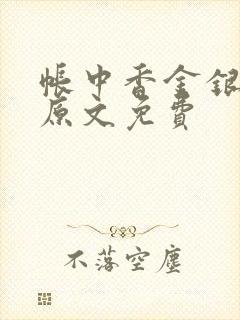 帳中香金銀
原文免費
不落空塵